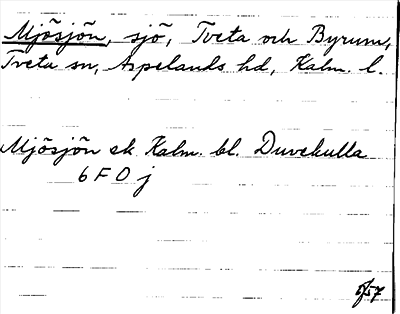 Mjösjön, sjö, Tveta och Byrum,
Tveta sn, Aspelands hd, Kalm. l.
Mjösjön ek Kalm. bl. Duvekulla
6 F 0 j